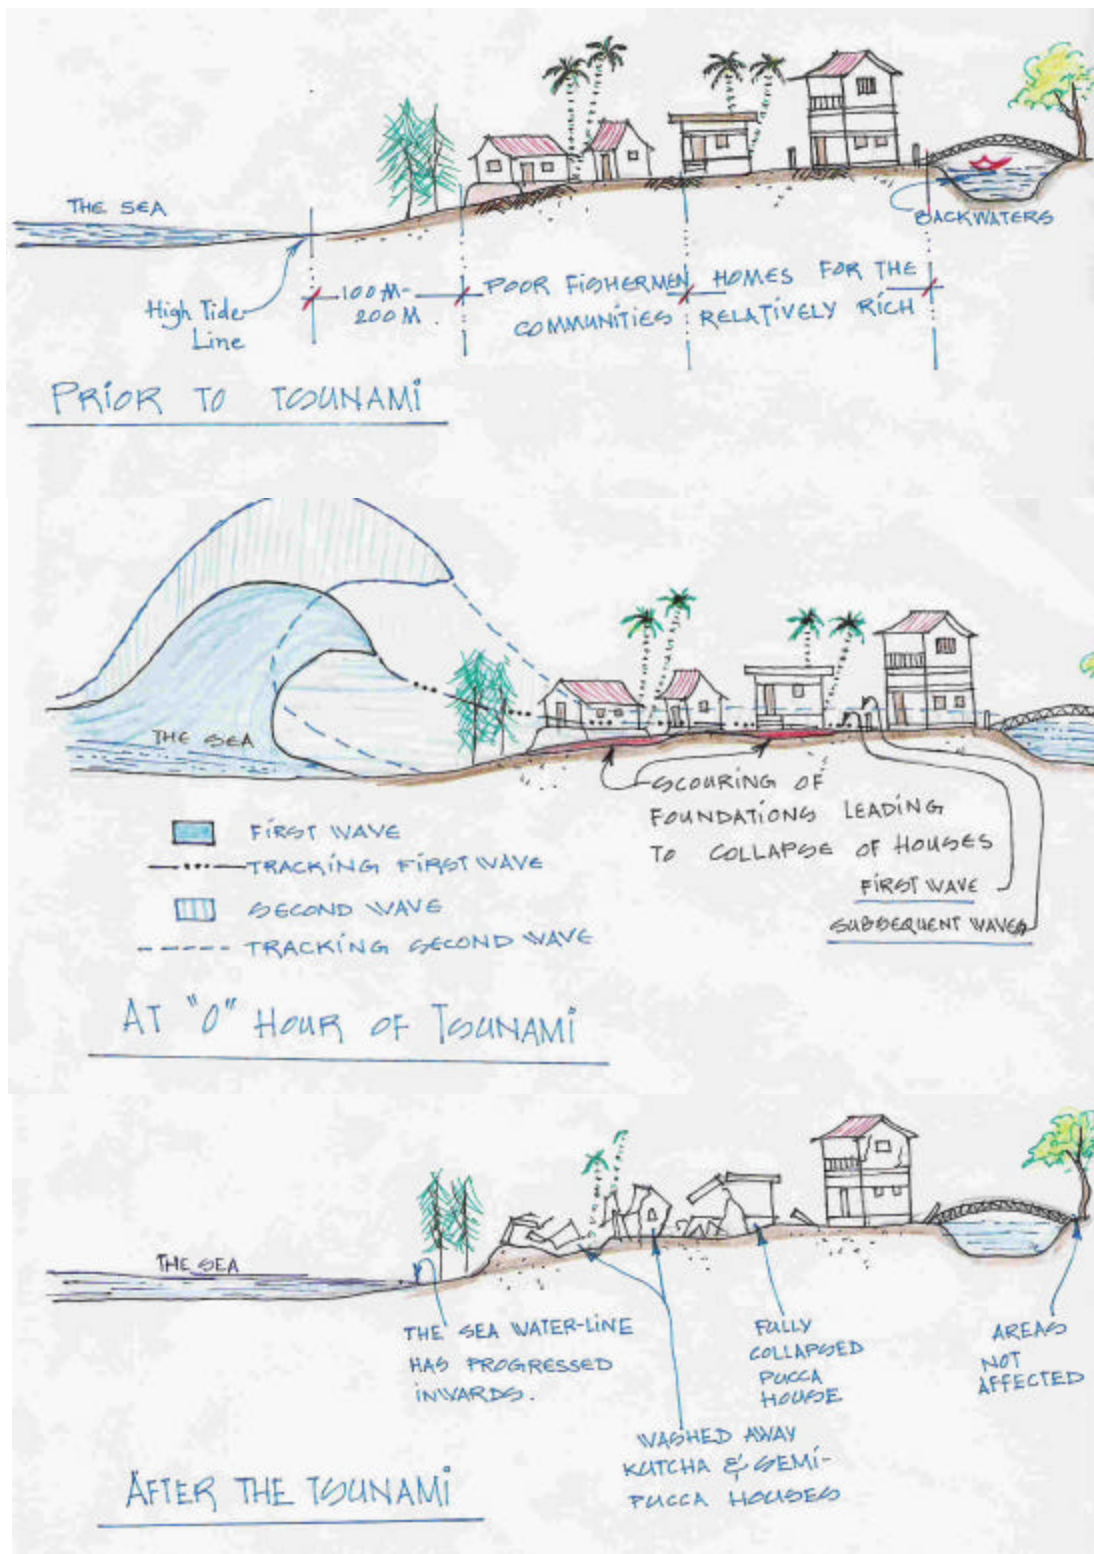 THE SEA
BACKWATERS
High Tide
Line
100 M-
200 M.
POOR FISHERMEN
COMMUNITIES
HOMES FOR THE
RELATIVELY RICH
PRIOR TO TSUNAMI
THE SEA
SCOURING OF
FOUNDATIONS LEADING
TO COLLAPSE OF HOUSES
FIRST WAVE
SUBSEQUENT WAVES
FIRST WAVE
TRACKING FIRST WAVE
SECOND WAVE
TRACKING SECOND WAVE
AT "0" HOUR OF TSUNAMI
THE SEA
THE SEA WATER-LINE
HAS PROGRESSED
INWARDS.
FULLY
COLLAPSED
PUCCA
HOUSE
AREAS
NOT
AFFECTED
WASHED AWAY
KUTCHA & SEMI-
PUCCA HOUSES
AFTER THE TSUNAMI